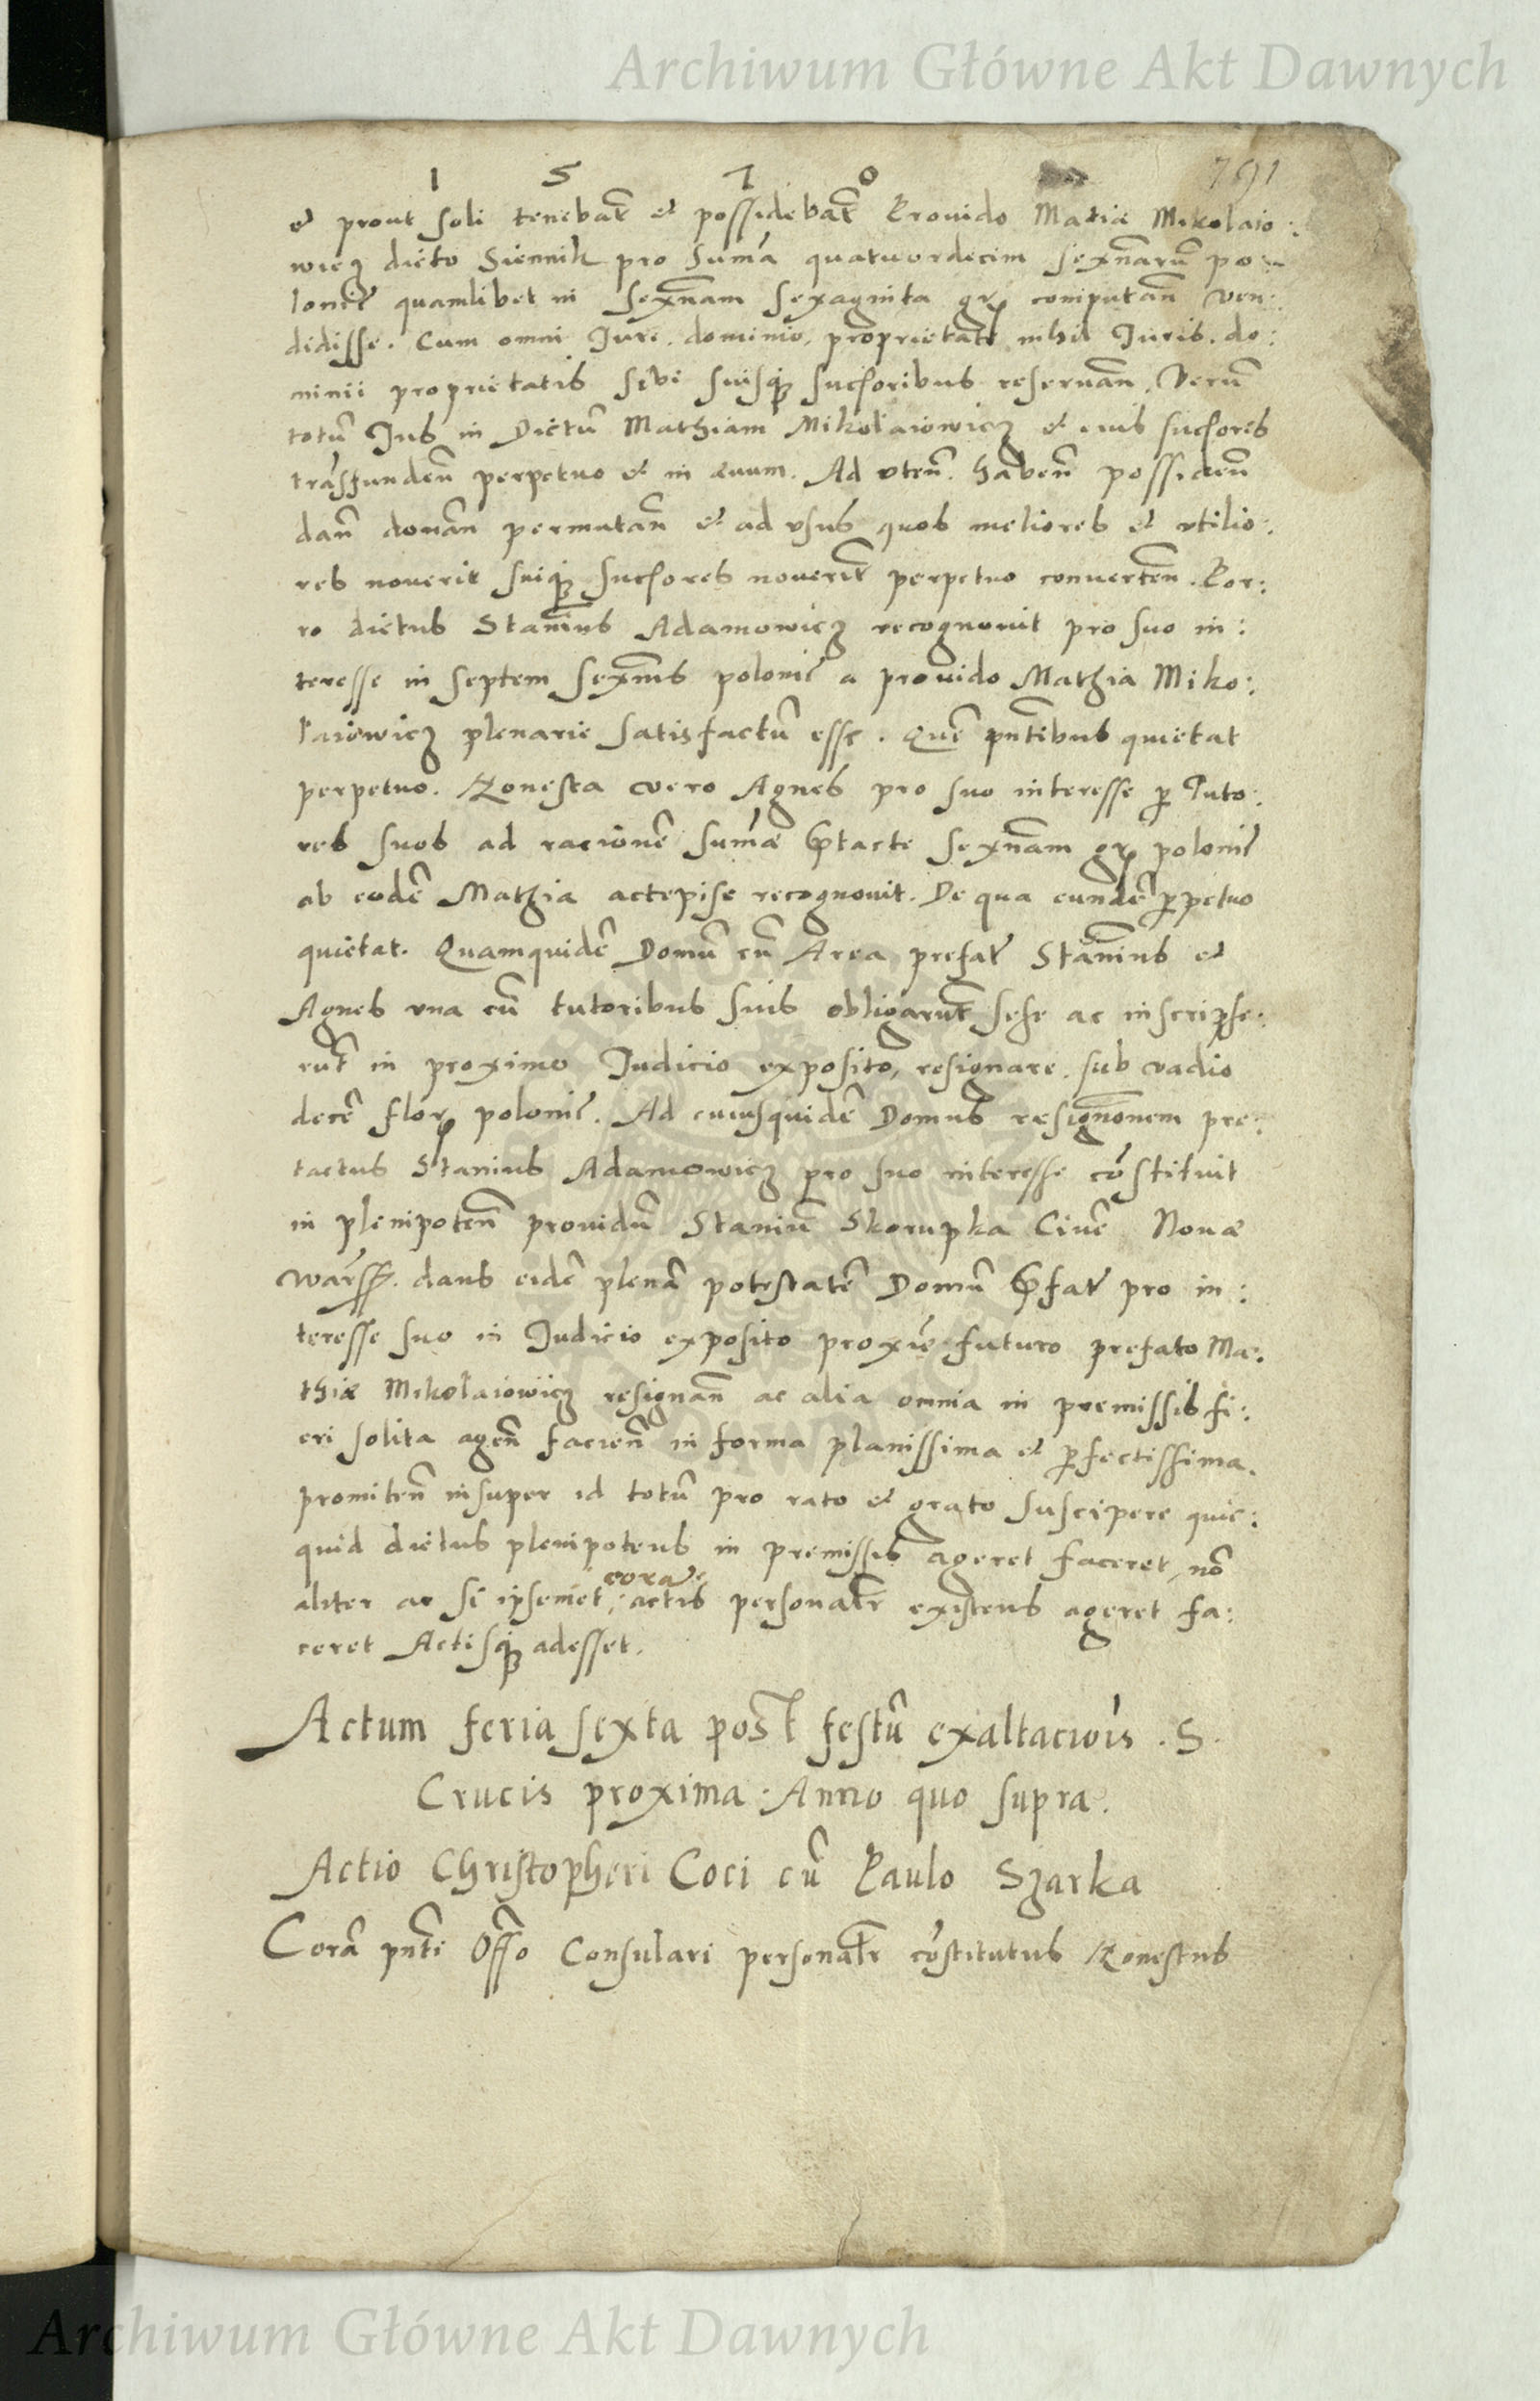 Archiwum Główne Akt Dawnych
1 5 7 0
791
et prout soli tenebat̃ et possidebat̃ Prouido Matiæ Mikolaio:
wicz dicto Siennik pro sum̃a quatuordecim sexñarũ po
loniĉ quamlibet in sexñam sexaginta gr̃ computañ ven:
didisse. Cum omni Iure. dominio, proprietate nihil Iuris. do:
minii proprietatis sibi suisq; sucſoribus reseruañ, Verũ
totũ Ius in Dictũ Mathiam Mikołaiowicz et eius sucſores
trãsfundeñ perpetuo et in æuum. Ad vteñ. habeñ possideñ
dañ donañ permutañ et ad vsus quos meliores et vtilio:
res nouerit suiq; sucſores nouerĩt perpetuo conuerteñ. Por:
ro dictus Stañius Adamowicz recognouit pro suo in:
teresse in septem sexm̃s poloniĉ a prouido Mathia Miko:
łaiowicz plenarie satisfactũ esse. Quẽ pñtibus quietat
perpetuo. Honesta vero Agnes pro suo interesse p̱ Tuto:
res suos ad racionẽ sum̃æ p̃tacte sexñam gr̃ poloniĉ
ab eodẽ Mathia accepise recognouit. De qua eundẽ p̱petuo
quietat. Quamquidẽ Domũ cũ Area prefat̃ Stañius et
Agnes vna cũ tutoribus suis obligarũt sese ac inscripse:
rũt in proximo Iudicio exposito, resignare. sub vadio
decẽ flor̃ poloniĉ. Ad cuiusquidẽ Domus resignõnem pre:
tactus Stanius Adamowicz pro suo interesse cõstituit
in plenipoteñ prouidũ Staniũ Skorupka Ciuẽ Nouæ
Warss̃. dans eidẽ plenã potestatẽ Domũ p̃fat̃ pro in:
teresse suo in Iudicio exposito proxie futuro prefato Ma:
thiæ Mikołaiowicz resignañ ac alia omnia in premissis fi:
eri solita ageñ facieñ in forma planissima et p̱fectissima.
promiteñ insuper id totũ pro rato et grato suscipere quic:
quid dictus plenipotens in premissis ageret faceret, nõ
aliter ac si ipsemet, corã actis personal̃r existens ageret fa:
ceret Actisq; adesset.
Actum feria sexta post festũ exaltaciõis . S.
Crucis proxima . Anno quo supra.
Actio Christopheri Coci cũ Paulo Szarka
Corã pñti Off̃o Consulari personal̃r cõstitutus Honestus
Archiwum Główne Akt Dawnych